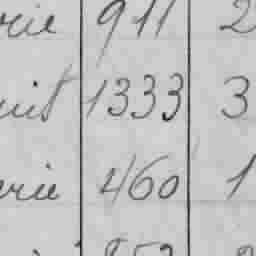 rie 911 2
uit 1333 3
erie 460 1